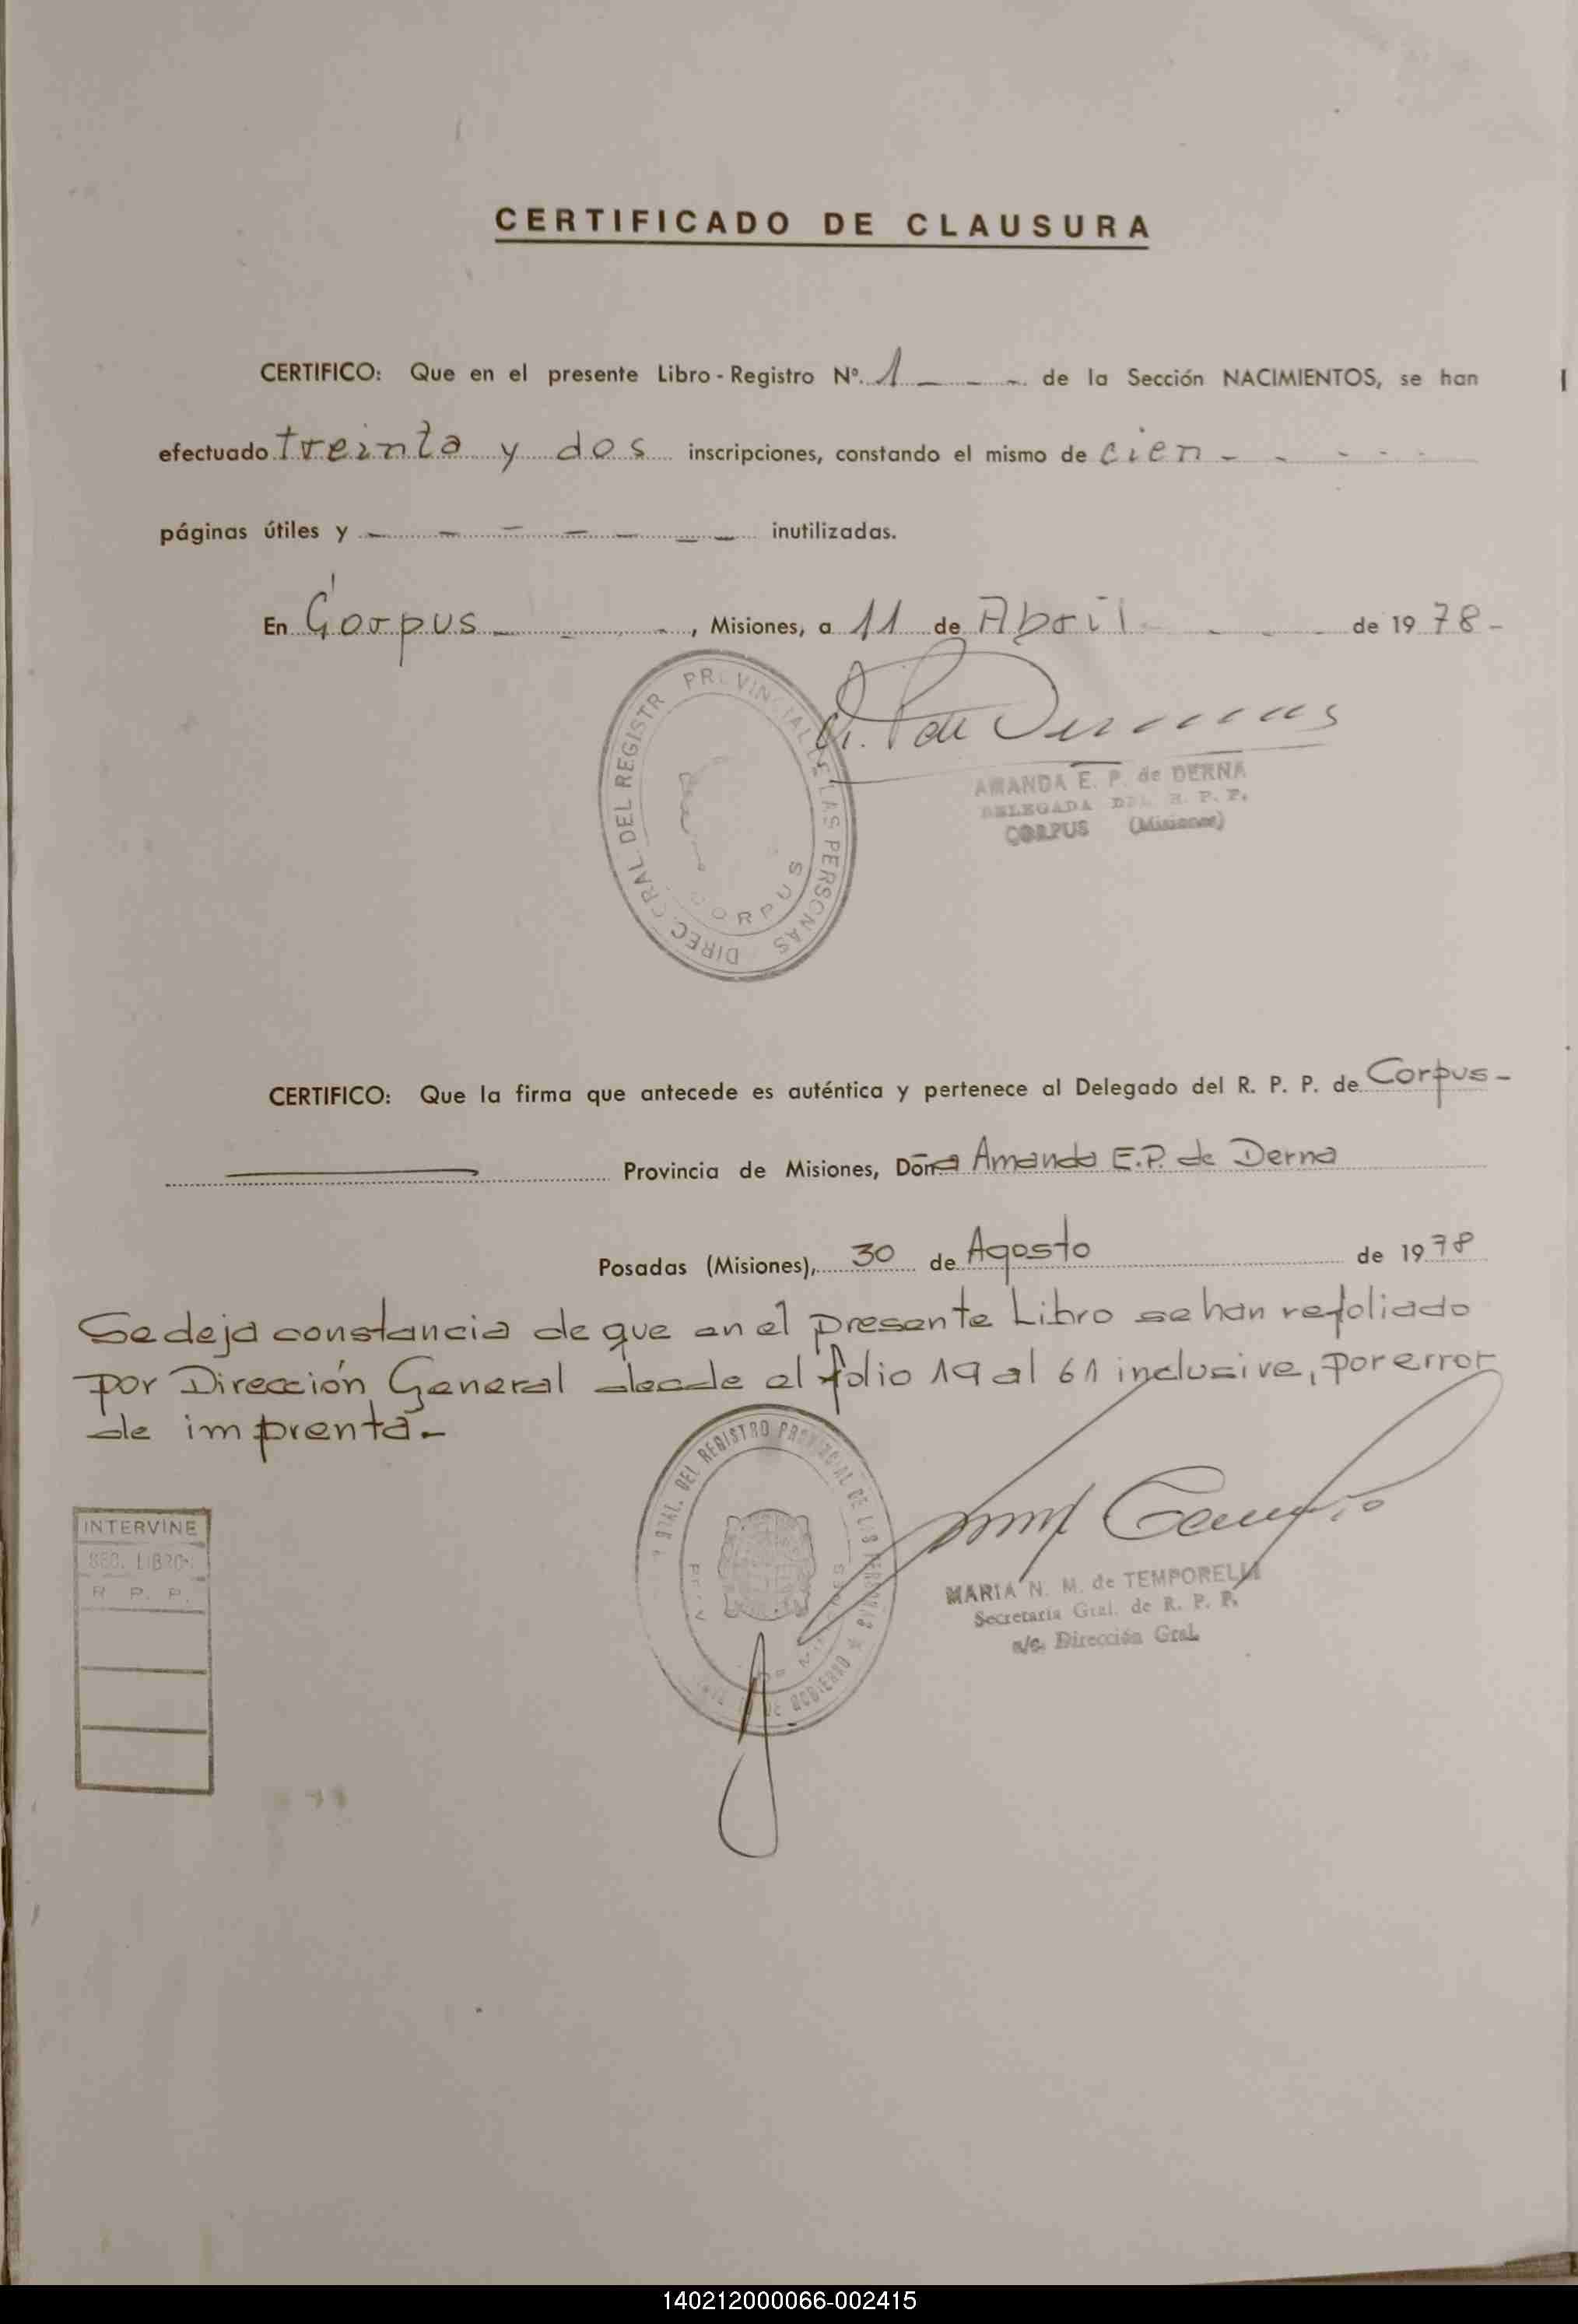 CERTIFICADO DE CLAUSURA
CERTIFICO: Que en el presente Libro-Registro Nº. 1 - - - de la Sección NACIMIENTOS, se han
efectuado treinta y dos inscripciones, constando el mismo de cien - - - - -
páginas útiles y - - - - - - - inutilizadas.
En Corpus - - -, Misiones, a 11 de Abril - - - de 1978-
DIREC. GRAL. DEL REGISTR PROVINCIAL DE LAS PERSONAS
CORPUS
AMANDA E. P. de DERNA
DELEGADA DEL R. P. P.
CORPUS (Misiones)
CERTIFICO: Que la firma que antecede es auténtica y pertenece al Delegado del R. P. P. de Corpus-
Provincia de Misiones, Doña Amanda E.P. de Derna
Posadas (Misiones), 30 de Agosto de 1978
Se deja constancia de que en el presente Libro se han refoliado
por Dirección General desde el folio 19 al 61 inclusive, por error
de imprenta.-
GRAL. DEL REGISTRO PROVINCIAL DE LAS PERSONAS
DE GOBIERNO
INTERVINE
SEC. LIBROS
R. P. P.
MARIA N. M. de TEMPORELLI
Secretaria Gral. de R. P. P.
a/c. Dirección Gral.
140212000066-002415